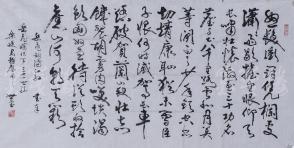 怒髮衝冠憑欄處
瀟瀟雨歇抬望眼仰天
長嘯壯懷激烈三十功名
塵與土八千里路雲和月莫
等閒白了少年頭空悲
切靖康恥猶未雪臣
子恨何時滅駕長車
踏破賀蘭山缺壯志
飢餐胡虜肉笑談渴
飲匈奴血待從頭收拾
舊山河朝天闕
岳飛詞滿江紅